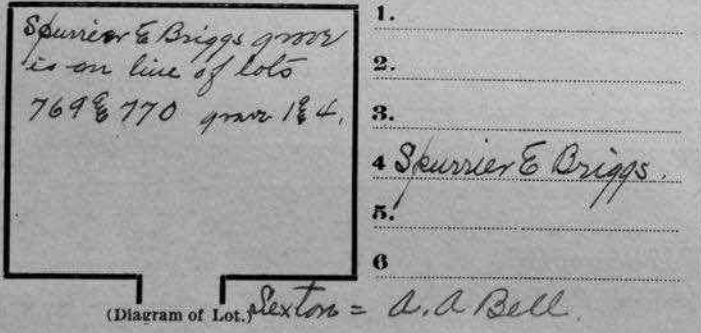 Spurrier E Briggs grave
is on line of lots
769 & 770 grave 1 & 4.
1.
2.
3.
4 Spurrier E Briggs.
5.
6
(Diagram of Lot.) Sexton = A. A Bell.